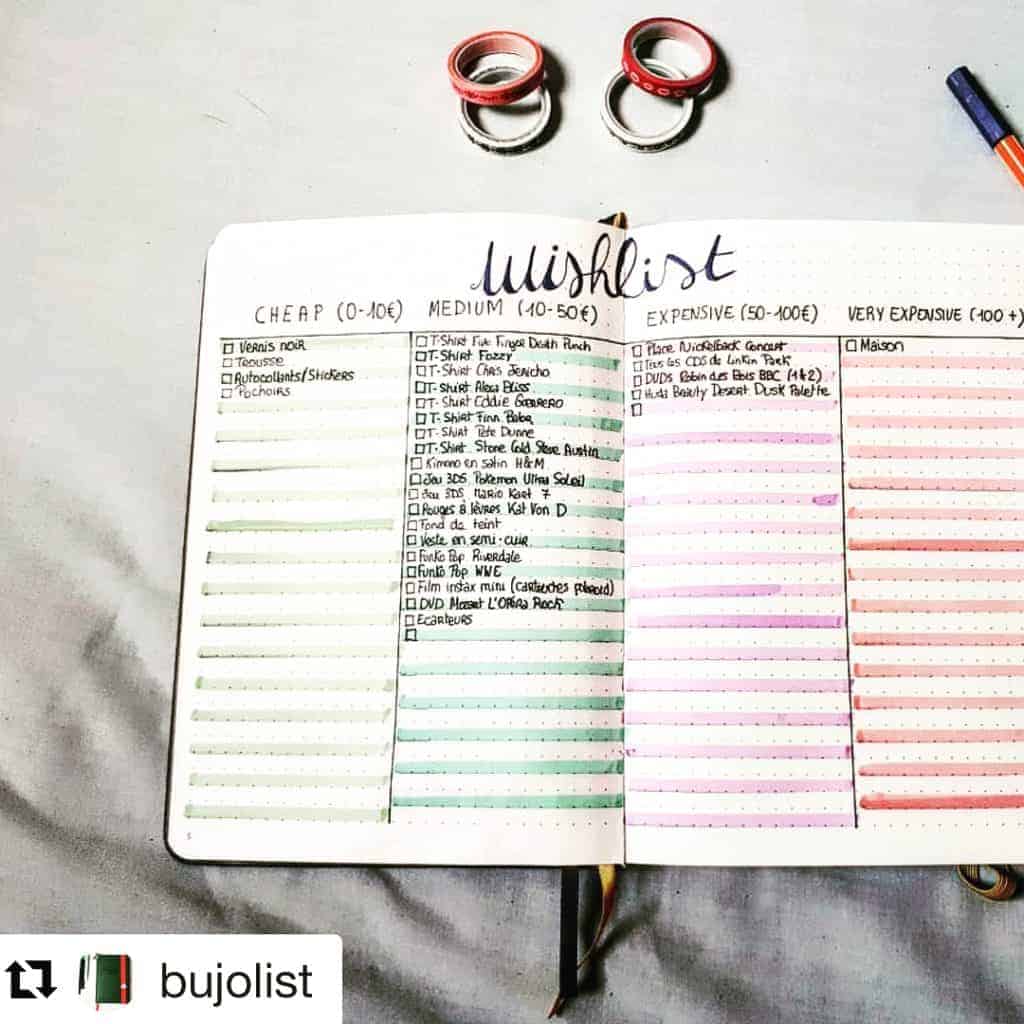 Wishlist
CHEAP (0-10€)
Vernis noir
Trousse
Autocollants/Stickers
Pochoirs
MEDIUM (10-50€)
T-Shirt Five Finger Death Punch
T-Shirt Fozzy
T-Shirt Chris Jericho
T-Shirt Alexa Bliss
T-Shirt Eddie Guerrero
T-Shirt Finn Balor
T-Shirt Pete Dunne
T-Shirt Stone Cold Steve Austin
Kimono en satin H&M
Jeu 3DS Pokemon Ultra Soleil
Jeu 3DS Mario Kart 7
Rouges à lèvres Kat Von D
Fond de teint
Veste en semi-cuir
Funko Pop Riverdale
Funko Pop WWE
Film instax mini (cartouches polaroid)
DVD Mozart L'Opéra Rock
Ecarteurs
EXPENSIVE (50-100€)
Place Nickelback Concert
Tous les CDS de Linkin Park
DVDS Robin des Bois BBC (1&2)
Huda Beauty Desert Dusk Palette
VERY EXPENSIVE (100+)
Maison
5
bujolist